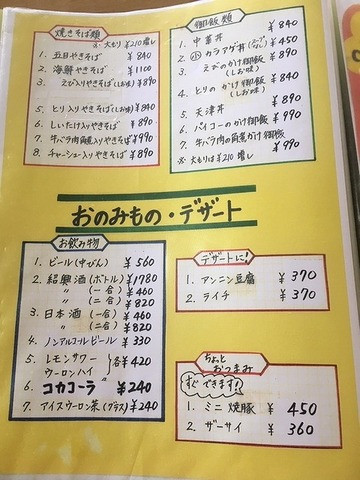 焼きそば類
※大もり¥210増し
1. 五目やきそば ¥840
2. 海鮮やきそば ¥1100
3. えび入りやきそば(しお味) ¥890
5. とり入りやきそば(しお味) ¥840
6. しいたけ入りやきそば ¥890
7. 牛バラ肉角煮入りやきそば ¥990
8. チャーシュー入りやきそば ¥890
御飯類
1. 中華丼 ¥840
2. 小カラアゲ丼 ¥450
3. えびのかけ御飯(しお味) ¥890
4. とりのかけ御飯(しお味) ¥840
5. 天津丼 ¥890
6. パイコーのかけ御飯 ¥990
7. 牛バラ肉の角煮かけ御飯 ¥990
※大もりは¥210増し
おのみもの・デザート
お飲み物
1. ビール(中びん) ¥560
2. 紹興酒(ボトル) ¥1780
〃 (一合) ¥460
〃 (二合) ¥820
3. 日本酒(一合) ¥460
〃 (二合) ¥820
4. ノンアルコールビール ¥330
5. レモンサワー
ウーロンハイ 各¥420
6. コカコーラ ¥240
7. アイスウーロン茶(グラス) ¥240
デザートに!
1. アンニン豆腐 ¥370
2. ライチ ¥370
ちょっとおつまみ
すぐできます!
1. ミニ焼豚 ¥450
2. ザーサイ ¥360